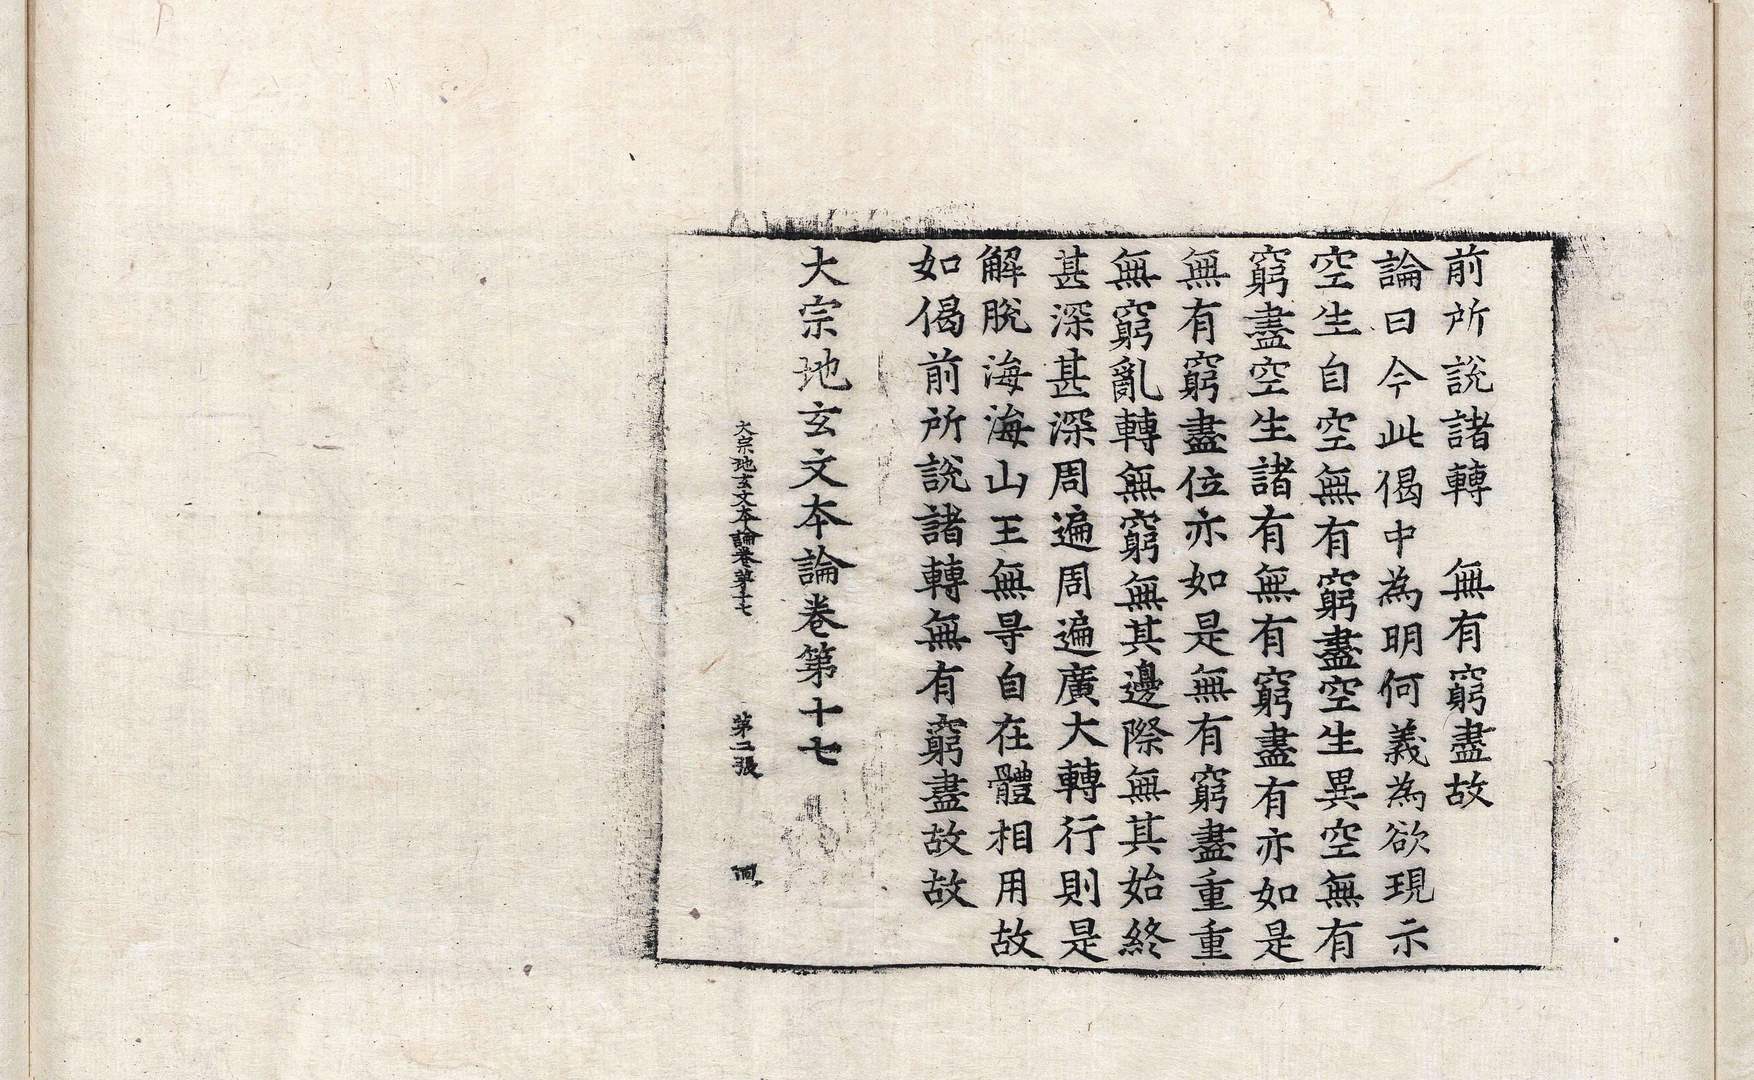 前所說諸轉　無有窮盡故
論曰今此偈中為明何義為欲現示
空生自空無有窮盡空生異空無有
窮盡空生諸有無有窮盡有亦如是
無有窮盡位亦如是無有窮盡重重
無窮亂轉無窮無其邊際無其始終
甚深甚深周遍周遍廣大轉行則是
解脫海海山王無㝵自在體相用故
如偈前所說諸轉無有窮盡故故
大宗地玄文夲論卷第十七
大宗地玄文夲論卷第十七　第二張